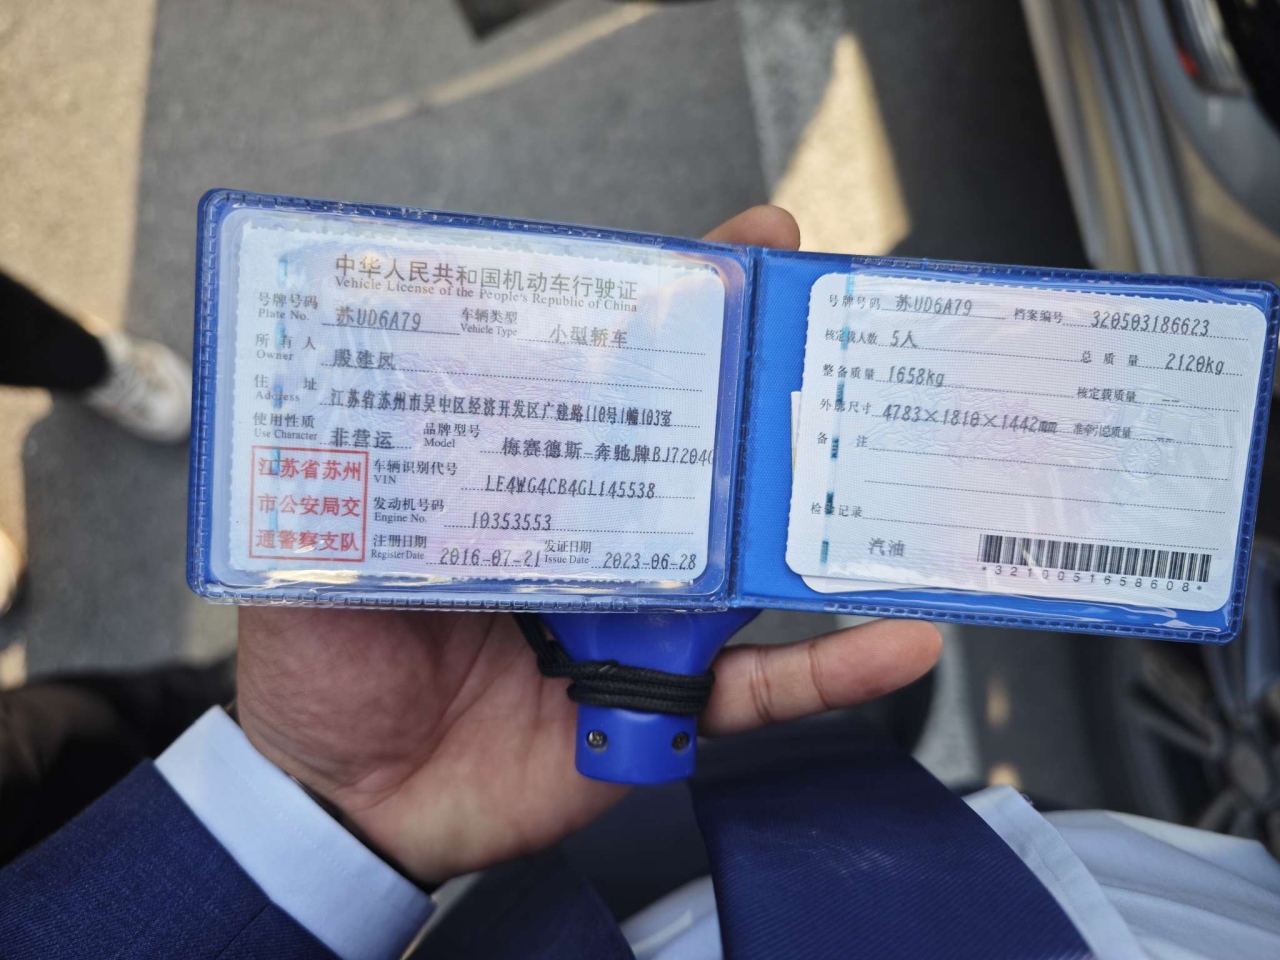 中华人民共和国机动车行驶证
Vehicle License of the People's Republic of China
号牌号码 Plate No. 苏UD6A79 车辆类型 Vehicle Type 小型轿车
所有人 Owner 殷建凤
住址 Address 江苏省苏州市吴中区经济开发区广建路110号1幢103室
使用性质 Use Character 非营运 品牌型号 Model 梅赛德斯-奔驰牌BJ7204
江苏省苏州
市公安局交
通警察支队
车辆识别代号 VIN LE4WG4CB4GL145538
发动机号码 Engine No. 10353553
注册日期 Register Date 2016-07-21 发证日期 Issue Date 2023-06-28
号牌号码 苏UD6A79 档案编号 320503186623
核定载人数 5人 总质量 2120kg
整备质量 1658kg 核定载质量 --
外廓尺寸 4783×1810×1442mm 准牵引总质量 --
备注
检验记录
汽油
*3210051658608*